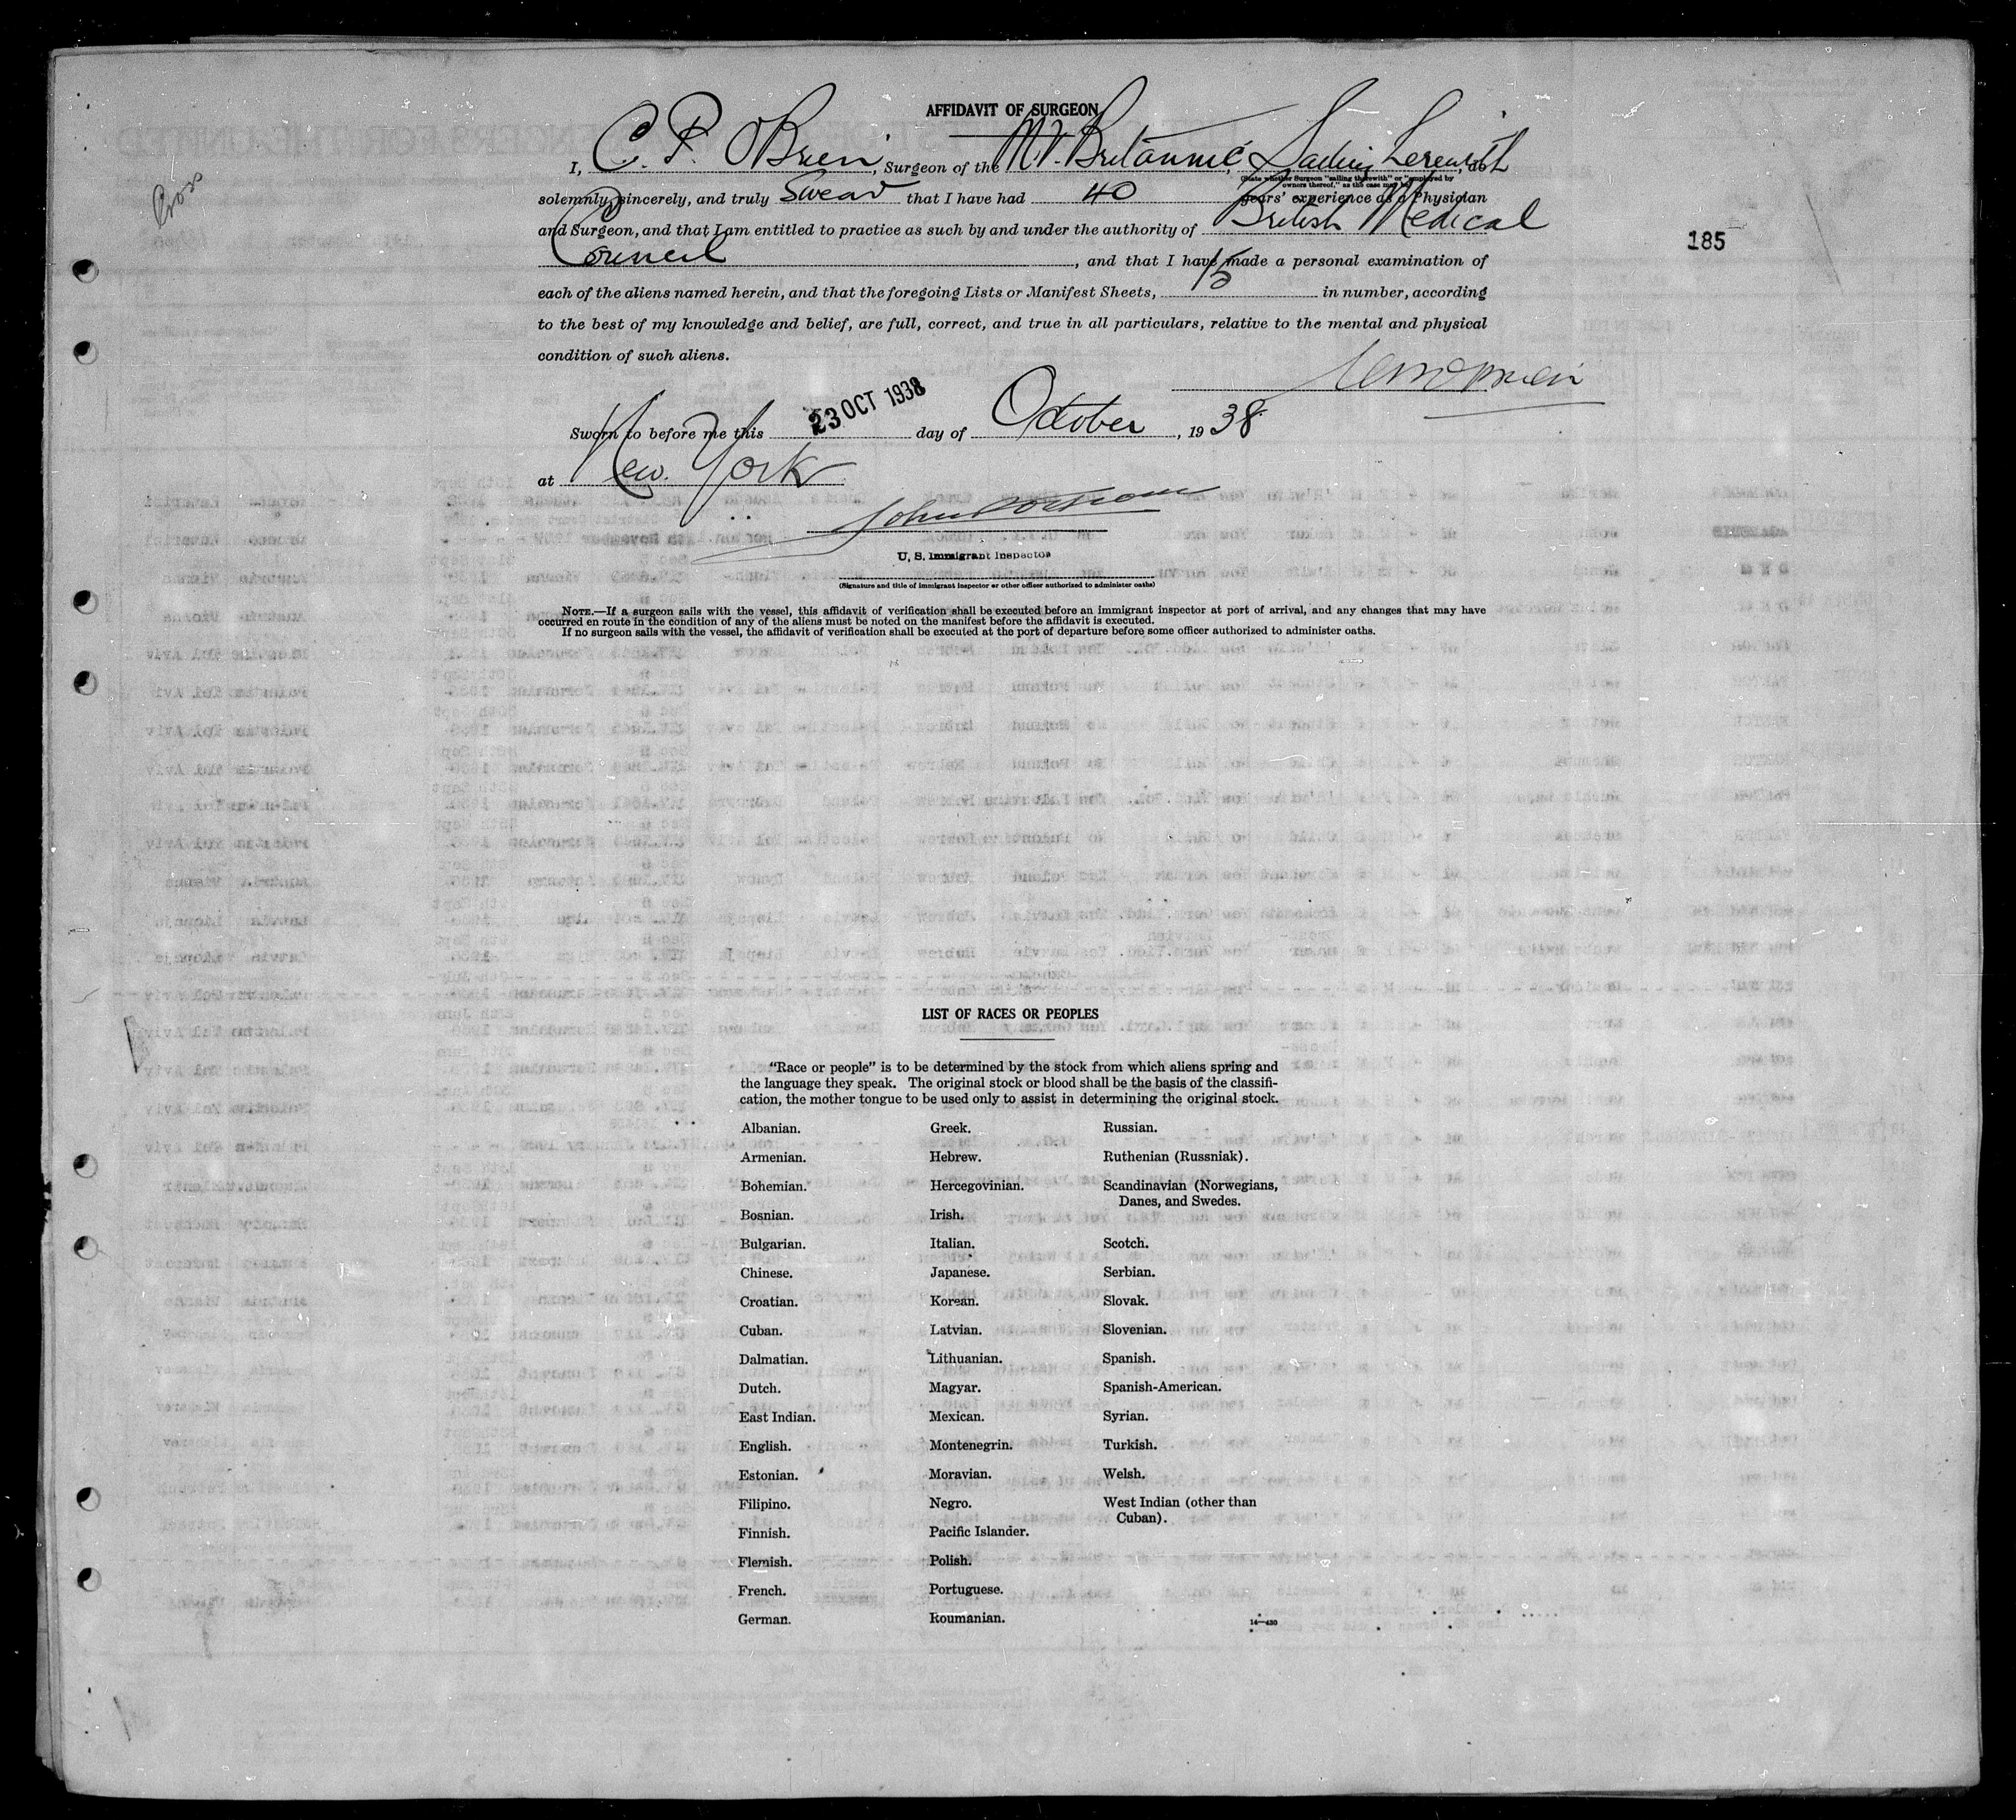 AFFIDAVIT OF SURGEON
I, C. P. O'Brien, Surgeon of the M.V. Britannic, Sailing herewith, do
(State whether Surgeon "sailing therewith" or "employed by
owners thereof," as the case may be)
solemnly, sincerely, and truly Swear that I have had 40 years' experience as a Physician
and Surgeon, and that I am entitled to practice as such by and under the authority of British Medical
Council, and that I have made a personal examination of
each of the aliens named herein, and that the foregoing Lists or Manifest Sheets, 15 in number, according
to the best of my knowledge and belief, are full, correct, and true in all particulars, relative to the mental and physical
condition of such aliens.
185
Sworn to before me this 23 OCT 1938 day of October, 1938
at New York
U. S. Immigrant Inspector
(Signature and title of immigrant inspector or other officer authorized to administer oaths)
NOTE.—If a surgeon sails with the vessel, this affidavit of verification shall be executed before an immigrant inspector at port of arrival, and any changes that may have
occurred en route in the condition of any of the aliens must be noted on the manifest before the affidavit is executed.
If no surgeon sails with the vessel, the affidavit of verification shall be executed at the port of departure before some officer authorized to administer oaths.
LIST OF RACES OR PEOPLES
"Race or people" is to be determined by the stock from which aliens spring and
the language they speak. The original stock or blood shall be the basis of the classifi-
cation, the mother tongue to be used only to assist in determining the original stock.
Albanian.
Armenian.
Bohemian.
Bosnian.
Bulgarian.
Chinese.
Croatian.
Cuban.
Dalmatian.
Dutch.
East Indian.
English.
Estonian.
Filipino.
Finnish.
Flemish.
French.
German.
Greek.
Hebrew.
Hercegovinian.
Irish.
Italian.
Japanese.
Korean.
Latvian.
Lithuanian.
Magyar.
Mexican.
Montenegrin.
Moravian.
Negro.
Pacific Islander.
Polish.
Portuguese.
Roumanian.
Russian.
Ruthenian (Russniak).
Scandinavian (Norwegians,
Danes, and Swedes.
Scotch.
Serbian.
Slovak.
Slovenian.
Spanish.
Spanish-American.
Syrian.
Turkish.
Welsh.
West Indian (other than
Cuban).
14—430